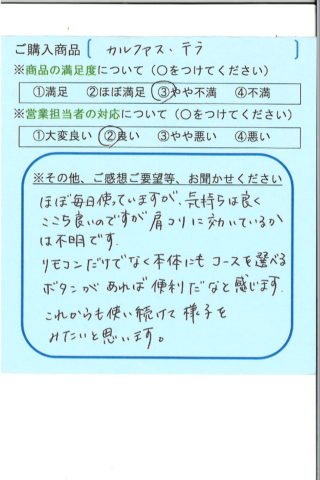 ご購入商品 〔 カルファス・テラ
※商品の満足度について（○をつけてください）
①満足 ②ほぼ満足 ③やや不満 ④不満
※営業担当者の対応について（○をつけてください）
①大変良い ②良い ③やや悪い ④悪い
※その他、ご感想ご要望等、お聞かせください
ほぼ毎日使っていますが、気持ちは良く
ここち良いのですが肩コリに効いているか
は不明です.
リモコンだけでなく本体にもコースを選べる
ボタンがあれば便利だなと感じます.
これからも使い続けて様子を
みたいと思います。